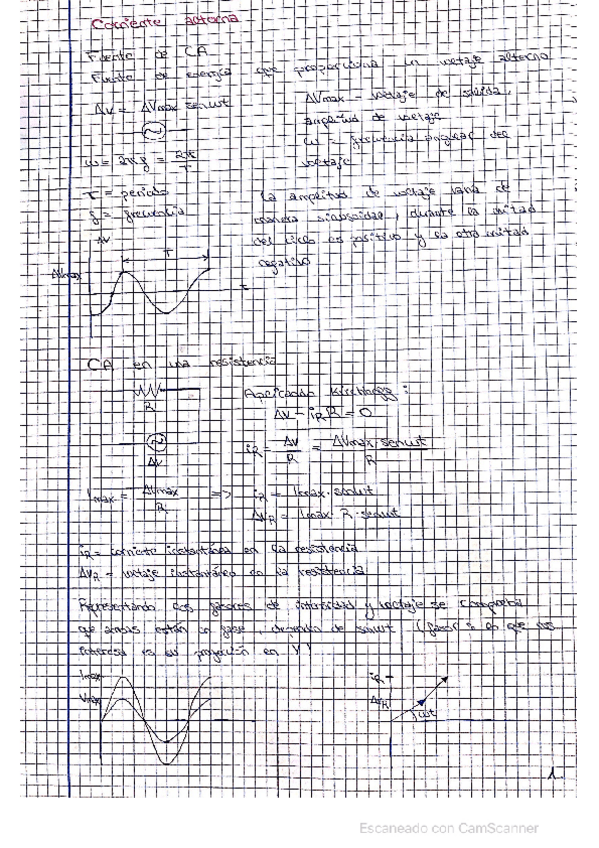 Corriente alterna
Fuente de CA
Fuente de energía que proporciona un voltaje alterno
ΔV = ΔVmax senωt
ΔVmax = voltaje de salida,
amplitud de voltaje
ω = frecuencia angular del
voltaje
ω = 2πf = 2π/T
T = periodo
f = frecuencia
La amplitud de voltaje varia de
manera sinusoidal, durante la mitad
del ciclo es positivo y la otra mitad
negativo
ΔV
T
ΔVmax
t
CA en una resistencia
R
ΔV
Aplicando Kirchhoff:
ΔV - iR R = 0
iR = ΔV/R = ΔVmax·senωt/R
Imax = ΔVmax/R => iR = Imax·senωt
ΔVR = Imax·R·senωt
iR = corriente instantánea en la resistencia
ΔVR = voltaje instantáneo en la resistencia
Representando los fasores de intensidad y voltaje se comprueba
que ambas están en fase, dependen de senωt (fasor: lo que nos
interesa es su proyección en Y)
Imax
Vmax
iR
ΔVR
ωt
1
Escaneado con CamScanner